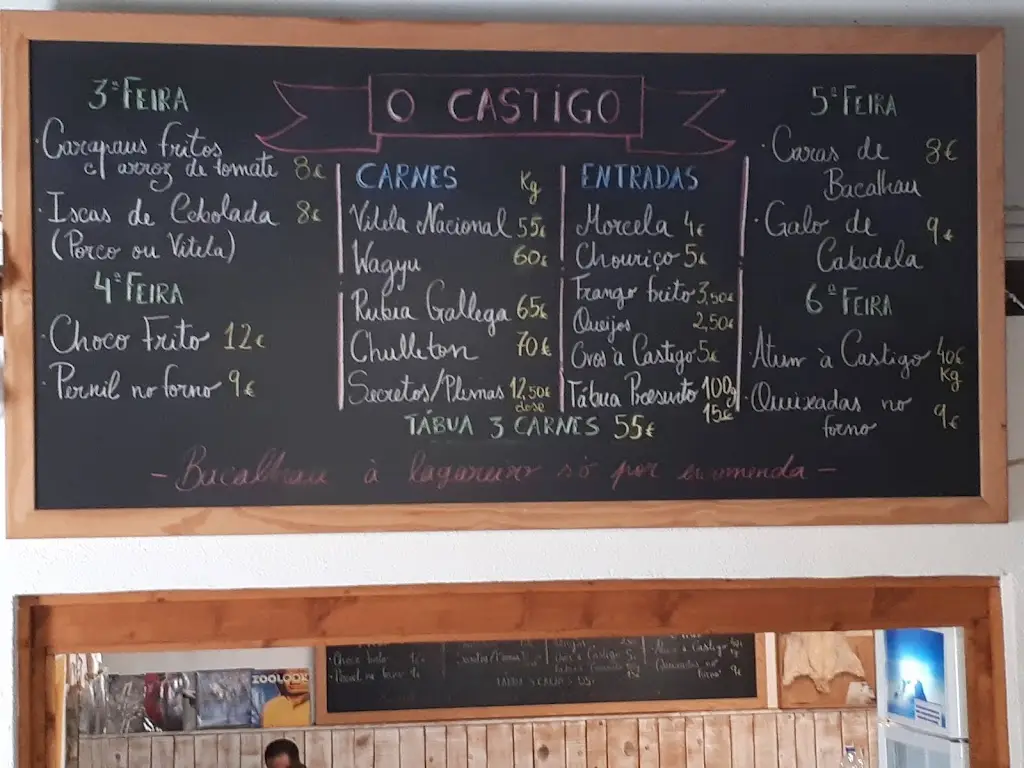 O CASTIGO
3ª FEIRA
· Carapaus fritos
c/ arroz de tomate 8€
· Iscas de Cebolada 8€
(Porco ou Vitela)
4ª FEIRA
· Choco Frito 12€
· Pernil no forno 9€
CARNES Kg
Vitela Nacional 55€
Wagyu 60€
Rubia Gallega 65€
Chulleton 70€
Secretos/Plumas 12,50€
dose
ENTRADAS
Morcela 4€
Chouriço 5€
Frango frito 3,50€
Queijos 2,50€
Ovos à Castigo 5€
Tábua Presunto 100g
15€
TÁBUA 3 CARNES 55€
5ª FEIRA
· Caras de 8€
Bacalhau
· Galo de 9€
Cabidela
6ª FEIRA
· Atum à Castigo 40€
Kg
· Queixadas no 9€
forno
- Bacalhau à lagareiro só por encomenda -
ZOOLOOK